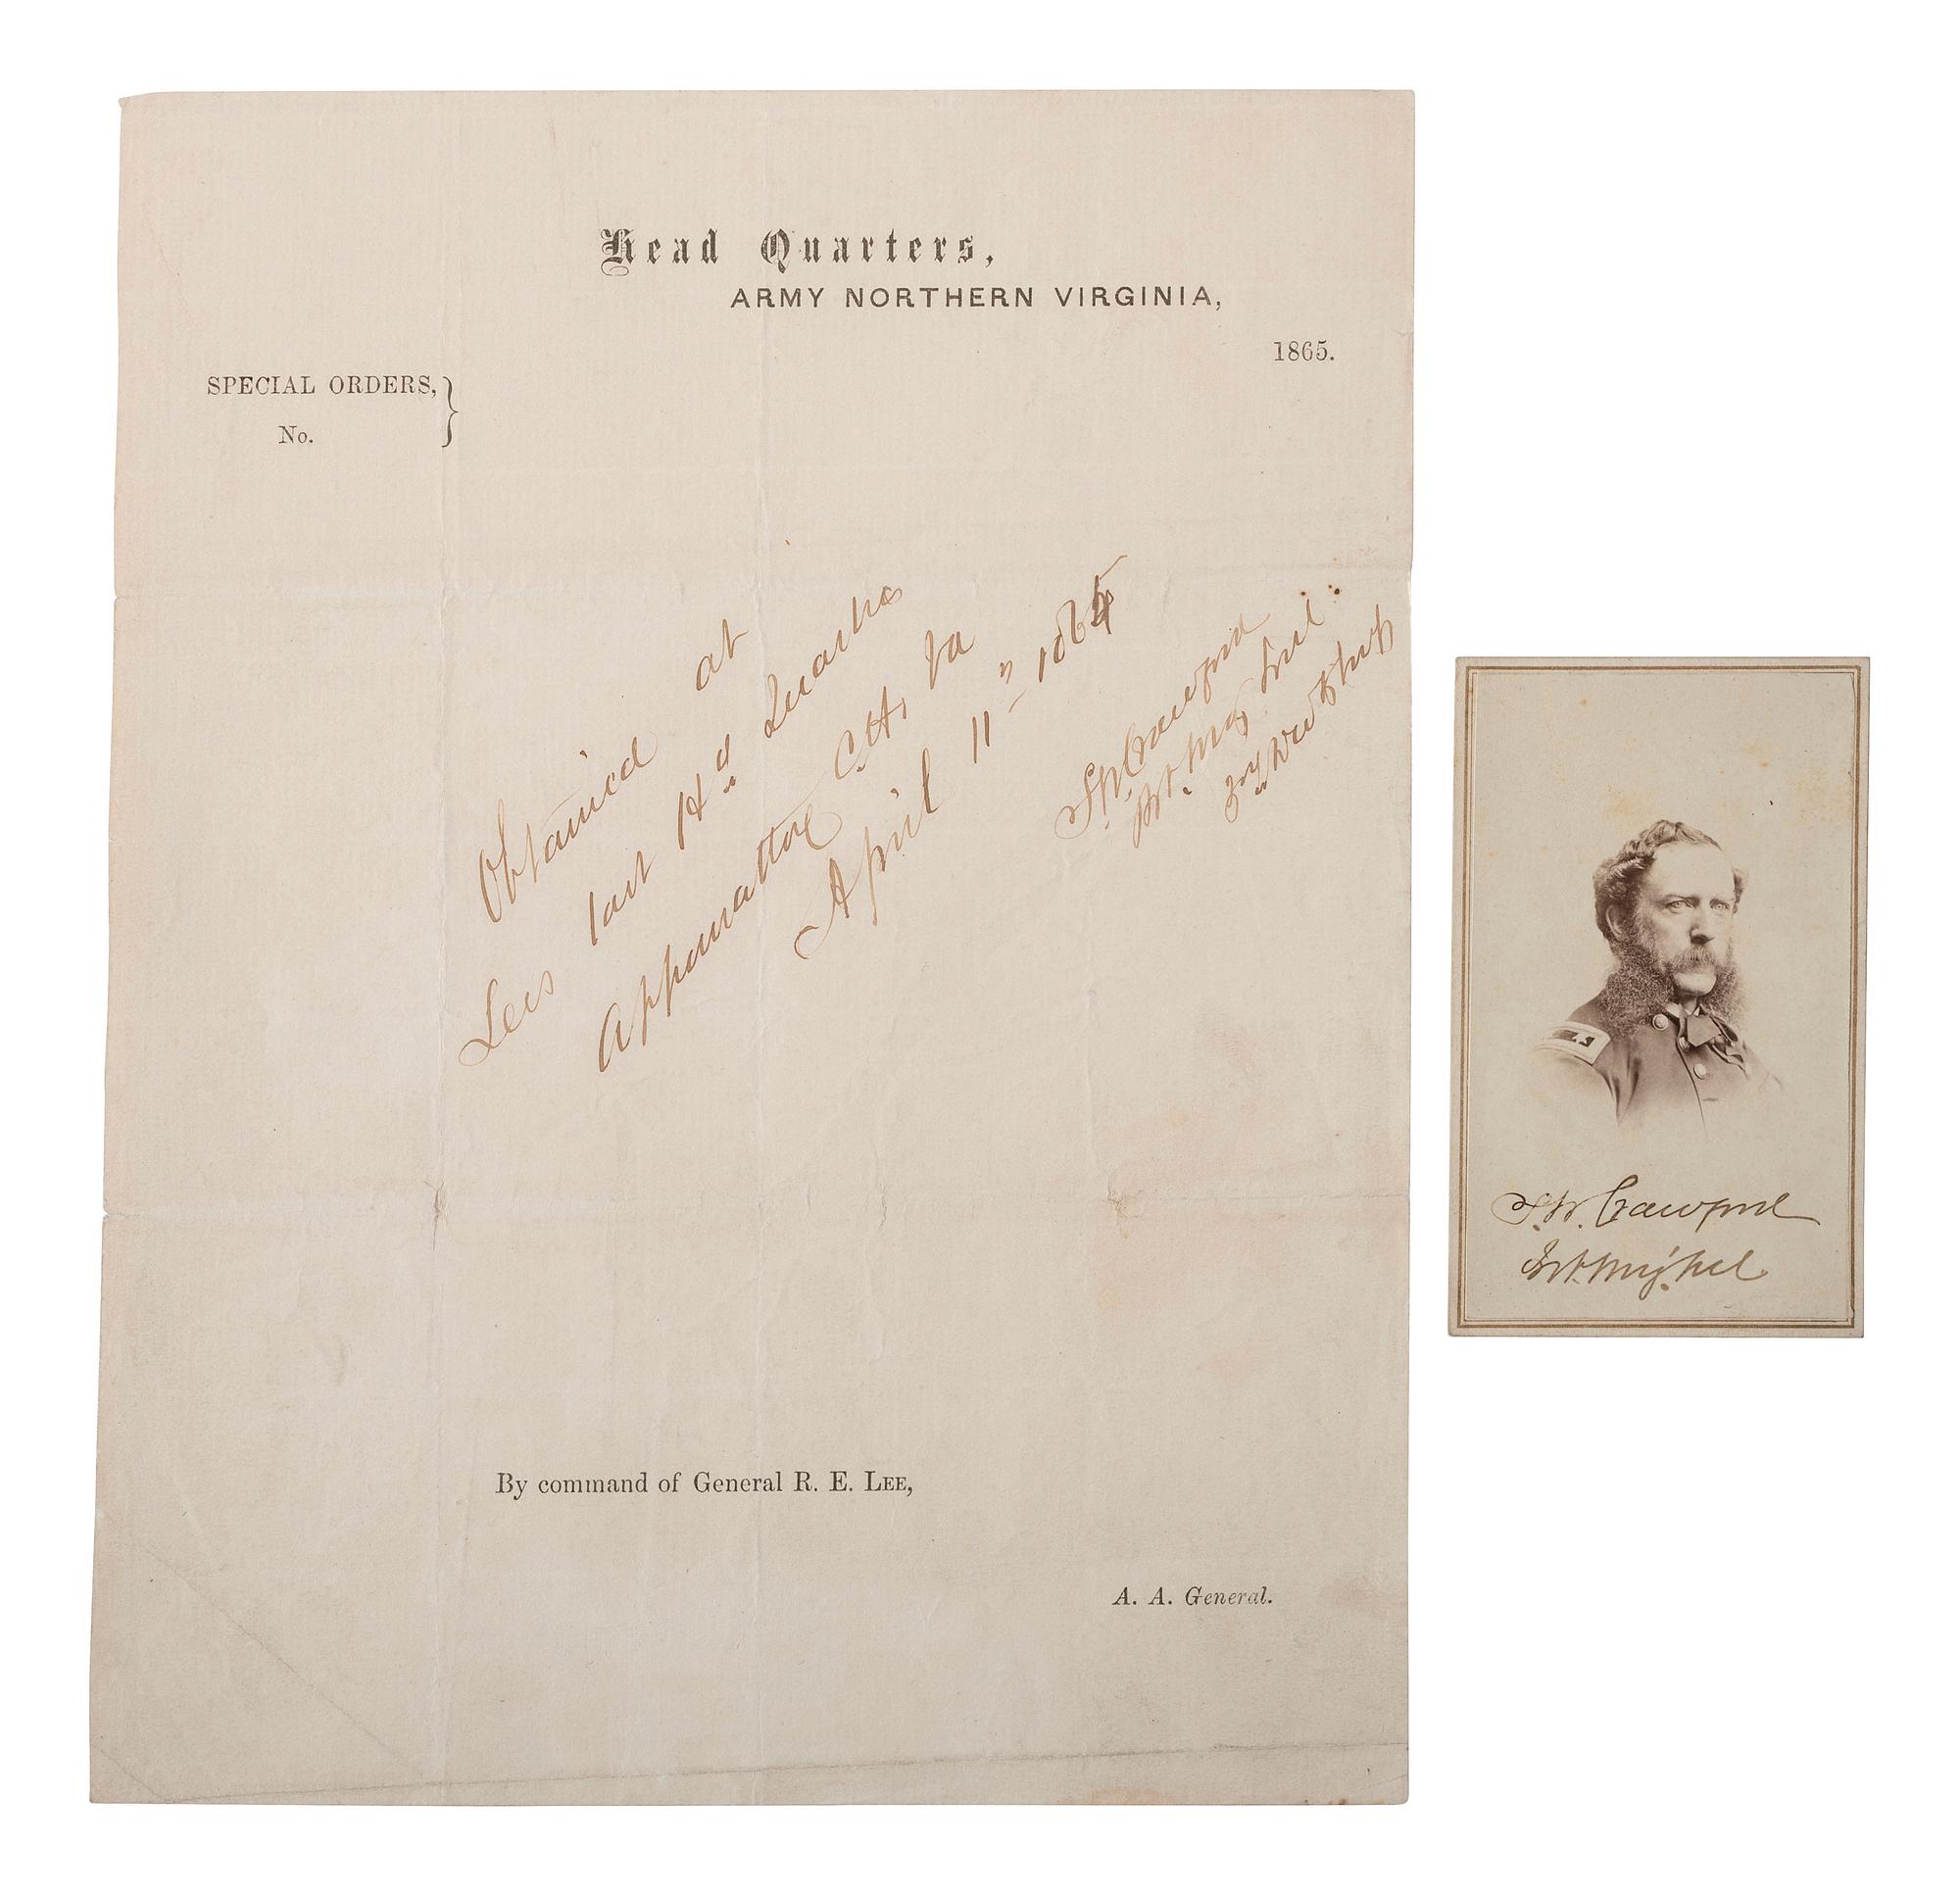 Head Quarters,
ARMY NORTHERN VIRGINIA,
1865.
SPECIAL ORDERS,
No.
Obtained at
Lees last Hd Quarters
Appomattox C.H. Va
April 11" 1865
S.W. Crawford
Bt. Maj. Genl.
By command of General R. E. LEE,
A. A. General.
S.W. Crawford
Bt. Maj. Genl